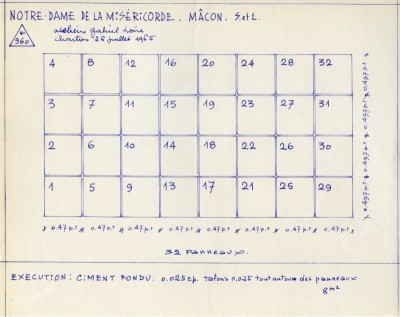 NOTRE-DAME DE LA MISÉRICORDE. MÂCON. S et L.
960
ateliers gabriel loire
chartres 26 juillet 1965
4 8 12 16 20 24 28 32
3 7 11 15 19 23 27 31
2 6 10 14 18 22 26 30
1 5 9 13 17 21 25 29
0.497 p.t 0.497 p.t 0.497 p.t 0.497 p.t
0.47 p.t 0.47 p.t 0.47 p.t 0.47 p.t 0.47 p.t 0.47 p.t 0.47 p.t 0.47 p.t
32 panneaux.
EXECUTION : CIMENT FONDU. 0.025 ep. talons 0.025 tout autour des panneaux
8 m²